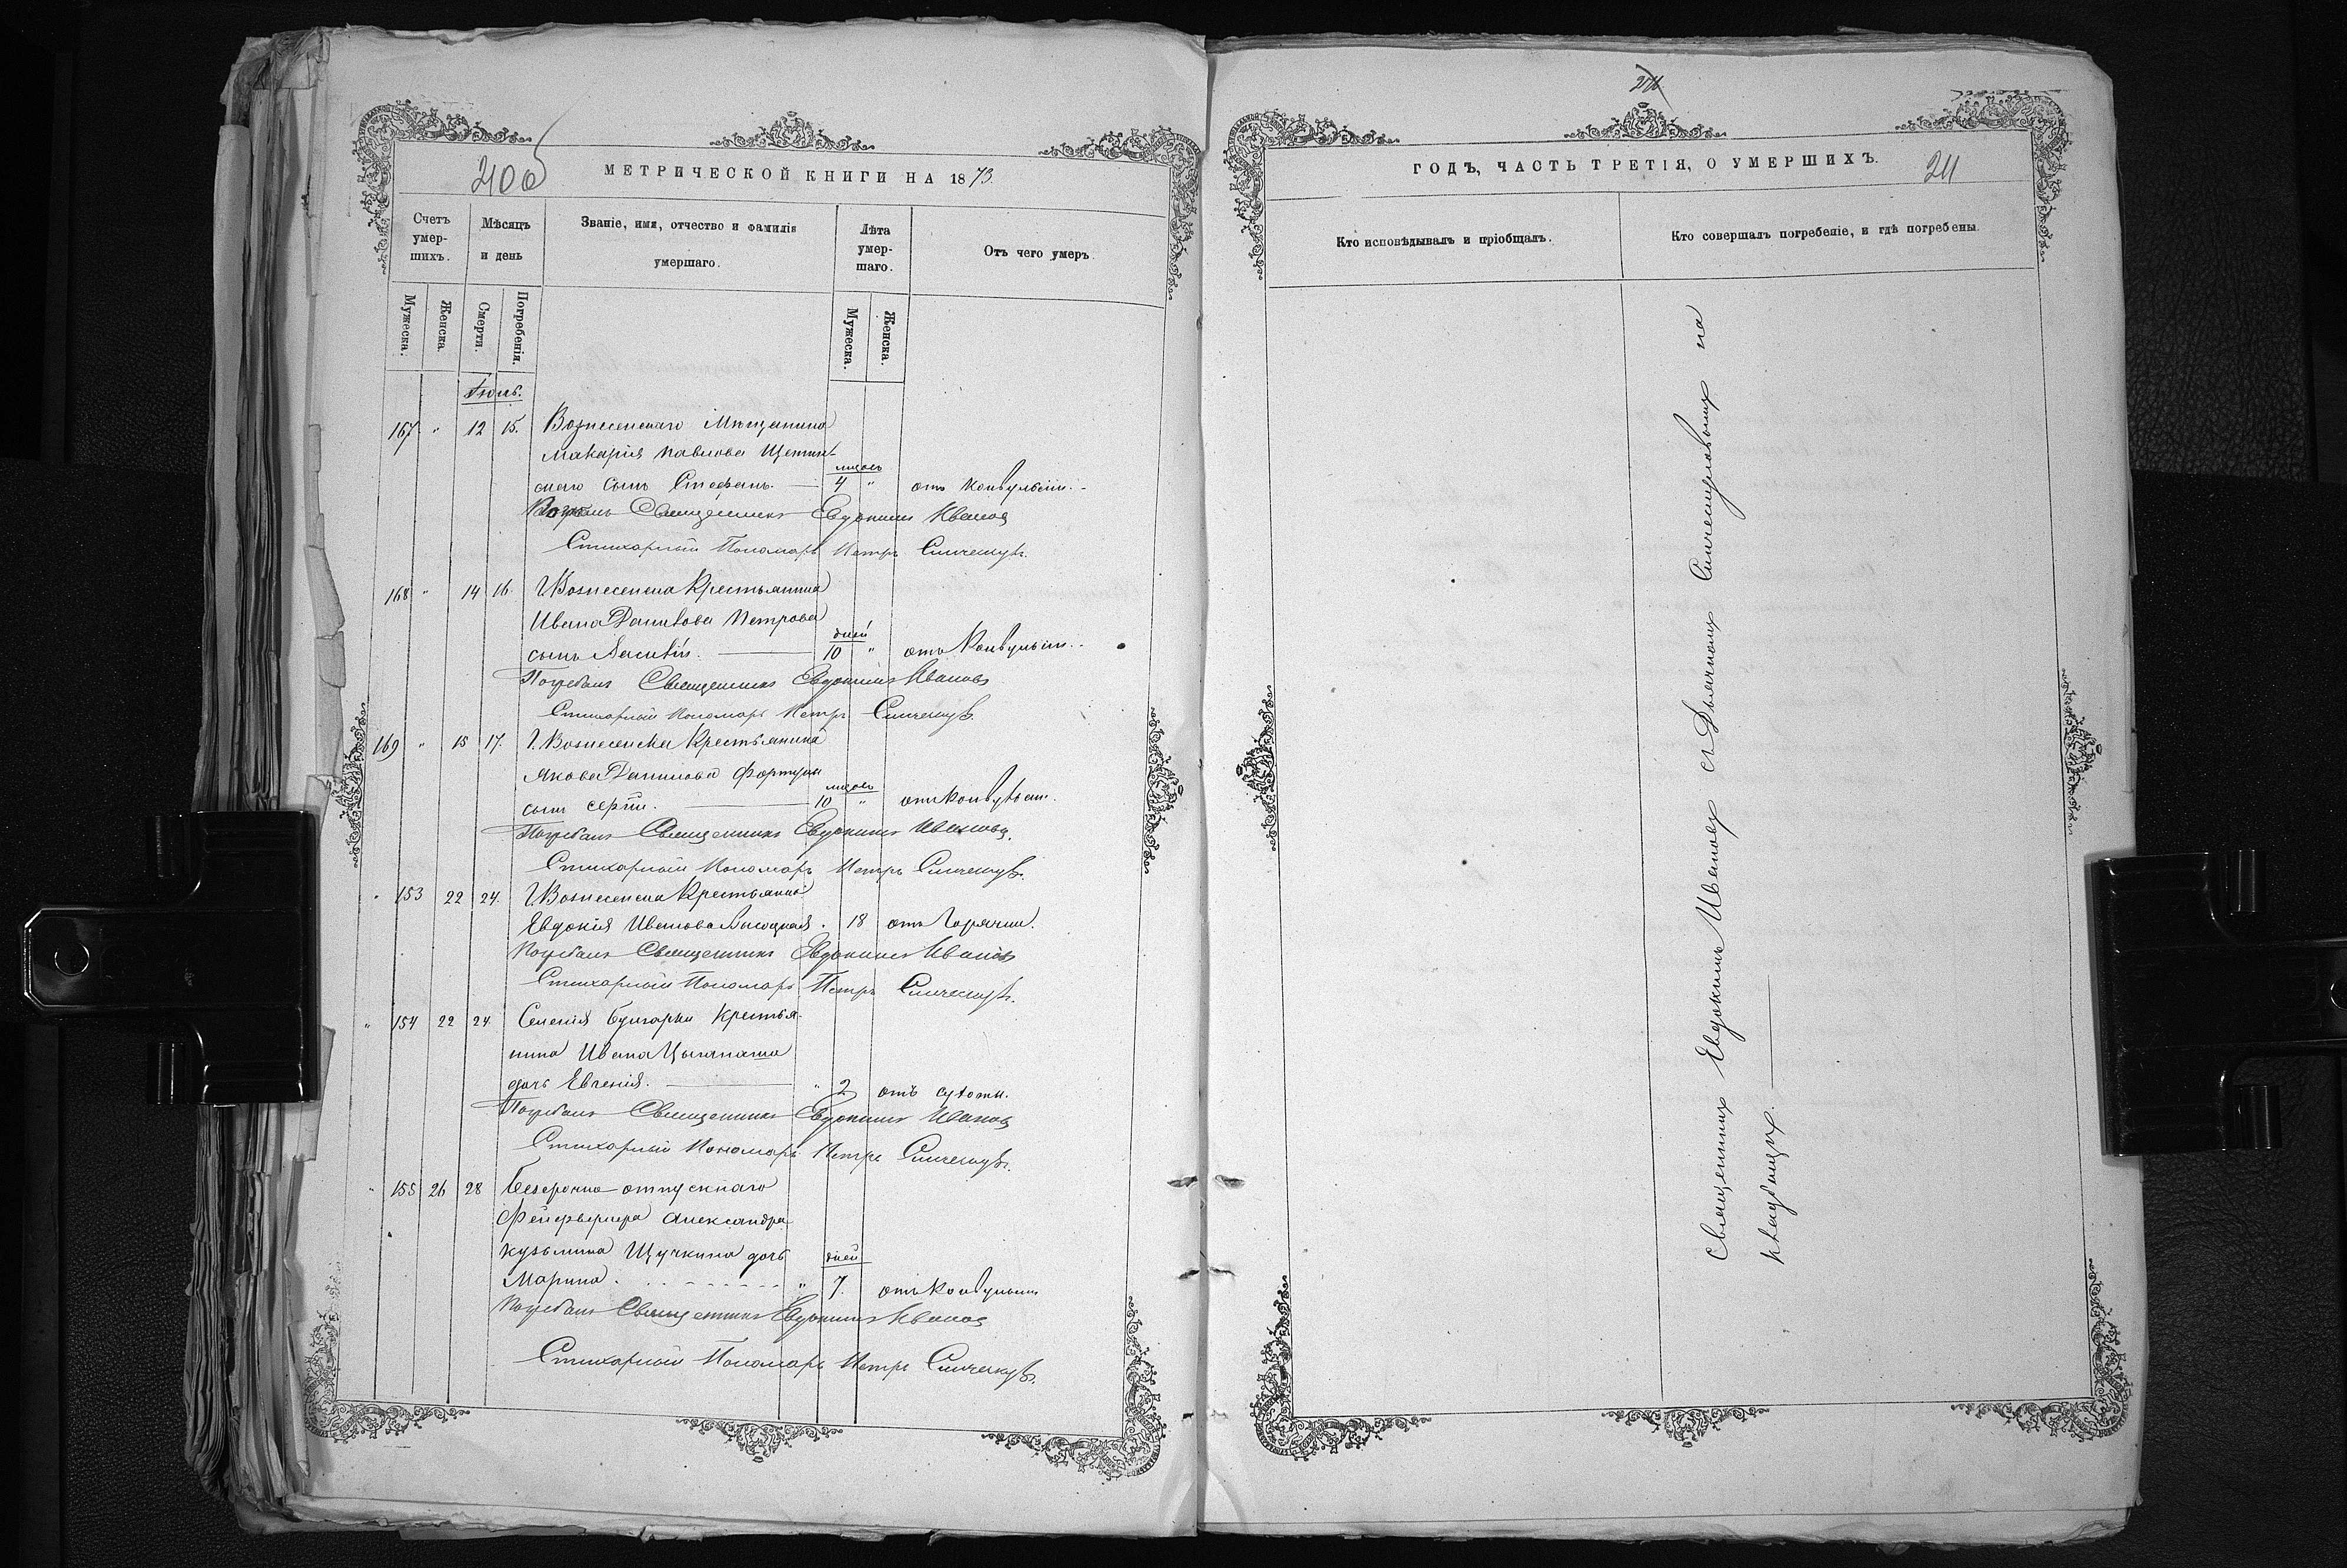 МЕТРИЧЕСКОЙ КНИГИ НА 1873
Счетъ умер-шихъ.
Мѣсяцъ и день
Званіе, имя, отчество и фамилія умершаго.
Лѣта умер-шаго.
Отъ чего умеръ.
Мужеска.
Женска.
Смерти.
Погребенія.
Мужеска.
Женска.
Іюль.
167 " 12 15. Вознесенскаго Мѣщанина
Макарія Павлова Щетин-
скаго сынъ Стефанъ. 4 " отъ конвульсіи.
Священникъ Евдокимъ Ивановъ
Стихарный Пономарь Петръ
168 " 14 16. Г. Вознесенска Крестьянина
Ивана Петрова
сынъ дней 10 " отъ Конвульсіи.
Погребалъ Священникъ Евдокимъ Ивановъ
Стихарный Пономарь Петръ
169 " 15 17. Г. Вознесенска Крестьянина
Якова Данилова
сынъ Сергій. 10 " отъ Конвульсіи.
Погребалъ Священникъ Евдокимъ Ивановъ
Стихарный Пономарь Петръ
" 153 22 24. Г. Вознесенска Крестьянка
Евдокія Иванова 18 отъ Горячки.
Погребалъ Священникъ Евдокимъ Ивановъ
Стихарный Пономарь Петръ
" 154 22 24 Селенія Булгарки Крестья-
нина Ивана
дочь Евгенія. " 2 отъ сухоты.
Погребалъ Священникъ Евдокимъ Ивановъ
Стихарный Пономарь Петръ
" 155 26 28 Безсрочно-отпускнаго
Фейерверкера Александра
Кузьмина Щучкина дочь дней
Марина. " 7. отъ Конвульсіи
Погребалъ Священникъ Евдокимъ Ивановъ
Стихарный Пономарь Петръ
ГОДЪ, ЧАСТЬ ТРЕТІЯ, О УМЕРШИХЪ.
211
Кто исповѣдывалъ и пріобщалъ.
Кто совершалъ погребеніе, и гдѣ погребены.
Священникъ Евдокимъ Ивановъ съ Дьячкомъ на
кладбищѣ.